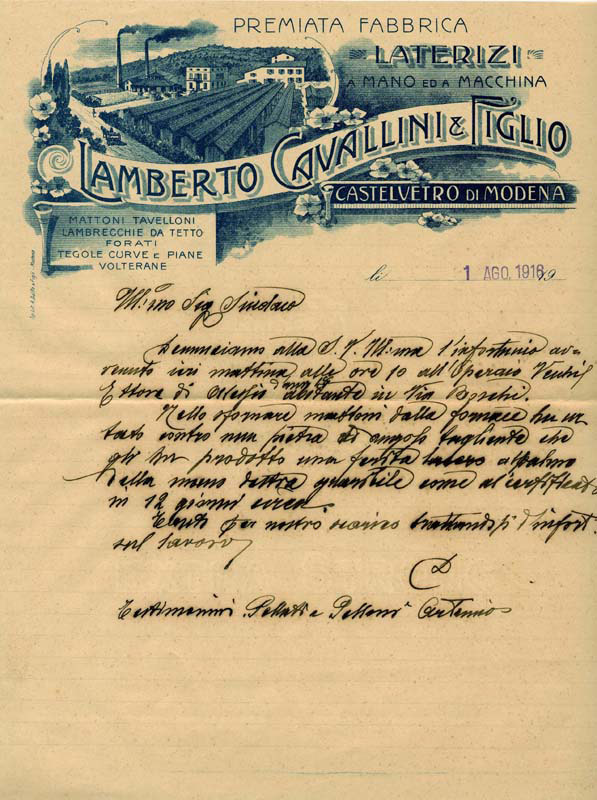 PREMIATA FABBRICA
LATERIZI
A MANO ED A MACCHINA
LAMBERTO CAVALLINI & FIGLIO
CASTELVETRO DI MODENA
MATTONI TAVELLONI
LAMBRECCHIE DA TETTO
FORATI
TEGOLE CURVE E PIANE
VOLTERANE
li 1 AGO. 1916 19
Ill:mo Sig Sindaco
Denunciamo alla S. V. Ill:ma l'infortunio av-
venuto ieri mattina alle ore 10 all'Operaio
Ettore di Alessio d'anni abitante in Via Boschi.
Nello sfornare mattoni dalla fornace ha ur
tato contro una pietra di angolo tagliente che
gli ha prodotto una ferita lacero al palmo
della mano destra guaribile come al certificato
in 12 giorni circa.
per nostro scarico trattandosi d'infort.
sul lavoro
Testimonini Pellati e Pelloni Artemio